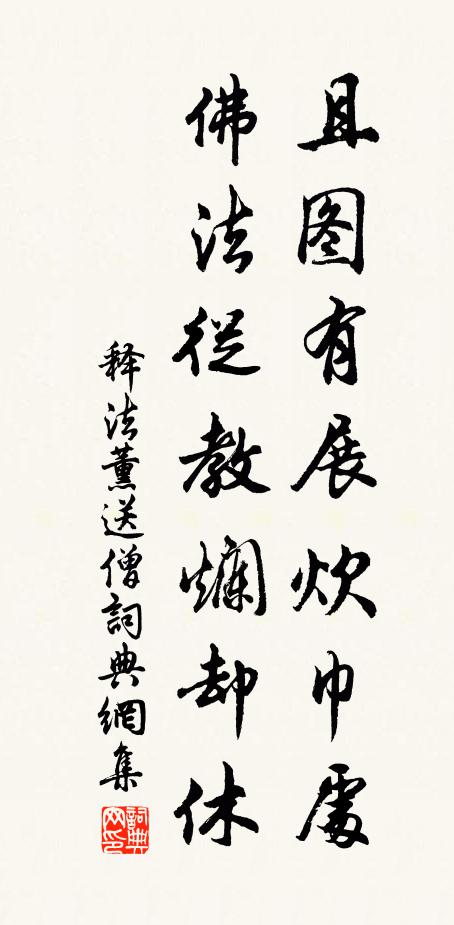 且图有展炊巾處
佛法從教爛却休
释法薰送僧詞典網集
詞典网印